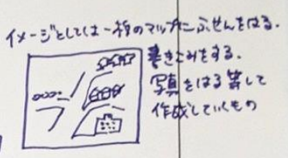 イメージとしては一種のマップにふせんをはる.
書きこみをする.
写真をはる等して
作成していくもの